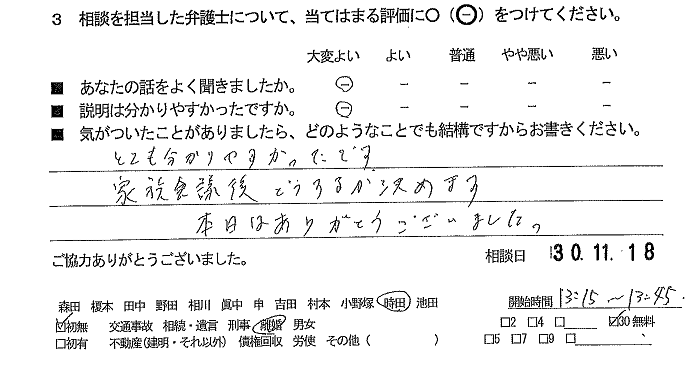 3 相談を担当した弁護士について、当てはまる評価に○(⊖)をつけてください。
大変よい よい 普通 やや悪い 悪い
■ あなたの話をよく聞きましたか。 ⊖ − − − −
■ 説明は分かりやすかったですか。 ⊖ − − − −
■ 気がついたことがありましたら、どのようなことでも結構ですからお書きください。
とても分かりやすかったです
家族会議後どうするか決めます
本日はありがとうございました。
ご協力ありがとうございました。 相談日 30.11.18
森田 榎本 田中 野田 相川 眞中 申 吉田 村本 小野塚 時田 池田 開始時間 13:15 〜 13:45
☑初無 交通事故 相続・遺言 刑事 離婚 男女 □2 □4 □ ☑30 無料
□初有 不動産(建明・それ以外) 債権回収 労使 その他( ) □5 □7 □9 □